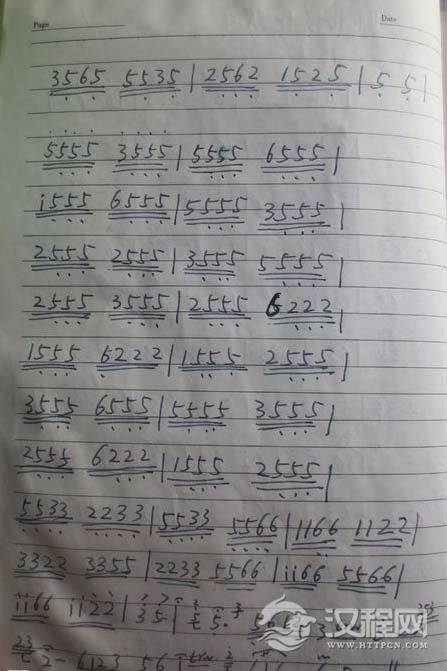 Page
Date
3565 5535|2562 1525|5 5|
5555 3555|5555 6555|
i555 6555|5555 3555|
2555 2555|3555 5555|
2555 3555|2555 6222|
1555 6222|1555 2555|
3555 6555|5555 3555|
2555 6222|1555 2555|
5533 2233|5533 5566|1166 1122|
3322 3355|2233 5566|ii66 5566|
ii66 ii22|35|
23
汉程网
WWW.HTTPCN.COM